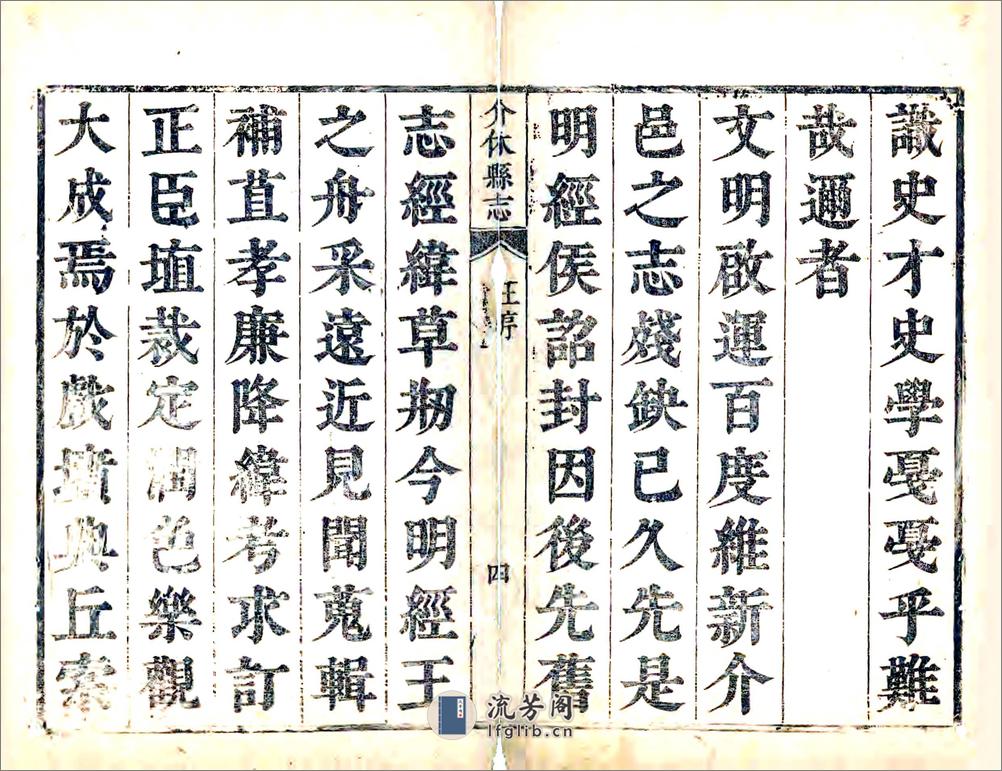 識史才史學戞戞乎難
哉邇者
文明啟運百度維新介
邑之志殘缺已久先是
明經侯詔封因後先舊
介休縣志
王序
四
志經緯草剏今明經王
之舟采遠近見聞蒐輯
補苴孝廉降緯考求訂
正臣埴裁定潤色樂觀
大成焉於戲墳典丘索
流芳阁
lfglib.cn